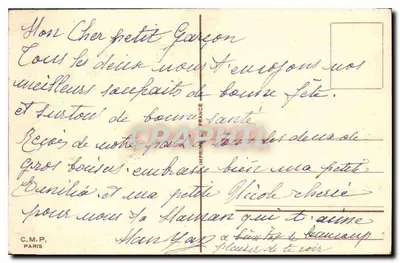 Mon Cher petit Garçon
Tous les deux nous t'envoyons nos
meilleurs souhaits de bonne fête.
et surtout de bonne santé
Reçois de notre part a tous les deux de
gros baises. embrasse bien ma petite
Emilie et ma petite Nicole cherie
pour nous ta Maman qui t'aime
a bientot beaucoup
plaisir de te voir
IMPRIMÉ EN FRANCE
CARPOSTAL
C.M.P.
PARIS